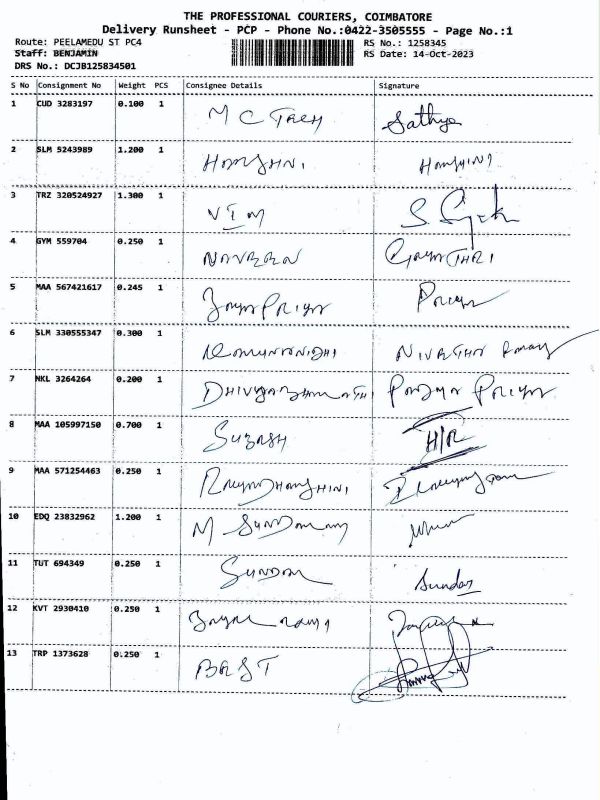 THE PROFESSIONAL COURIERS, COIMBATORE
Delivery Runsheet - PCP - Phone No.:0422-3505555 - Page No.:1
Route: PEELAMEDU ST PC4 RS No.: 1258345
Staff: BENJAMIN RS Date: 14-Oct-2023
DRS No.: DCJB125834501
S No Consignment No Weight PCS Consignee Details Signature
1 CUD 3283197 0.100 1 M C Sathya
2 SLM 5243989 1.200 1
3 TRZ 320524927 1.300 1 VIM S
4 GYM 559704 0.250 1 NAVEEN
5 MAA 567421617 0.245 1 Priya
6 SLM 330555347 0.300 1
7 NKL 3264264 0.200 1 Priya
8 MAA 105997150 0.700 1 SUBASH H/R
9 MAA 571254463 0.250 1
10 EDQ 23832962 1.200 1 M
11 TUT 694349 0.250 1 SUNDAR Sundar
12 KVT 2930410 0.250 1
13 TRP 1373628 0.250 1 BEST